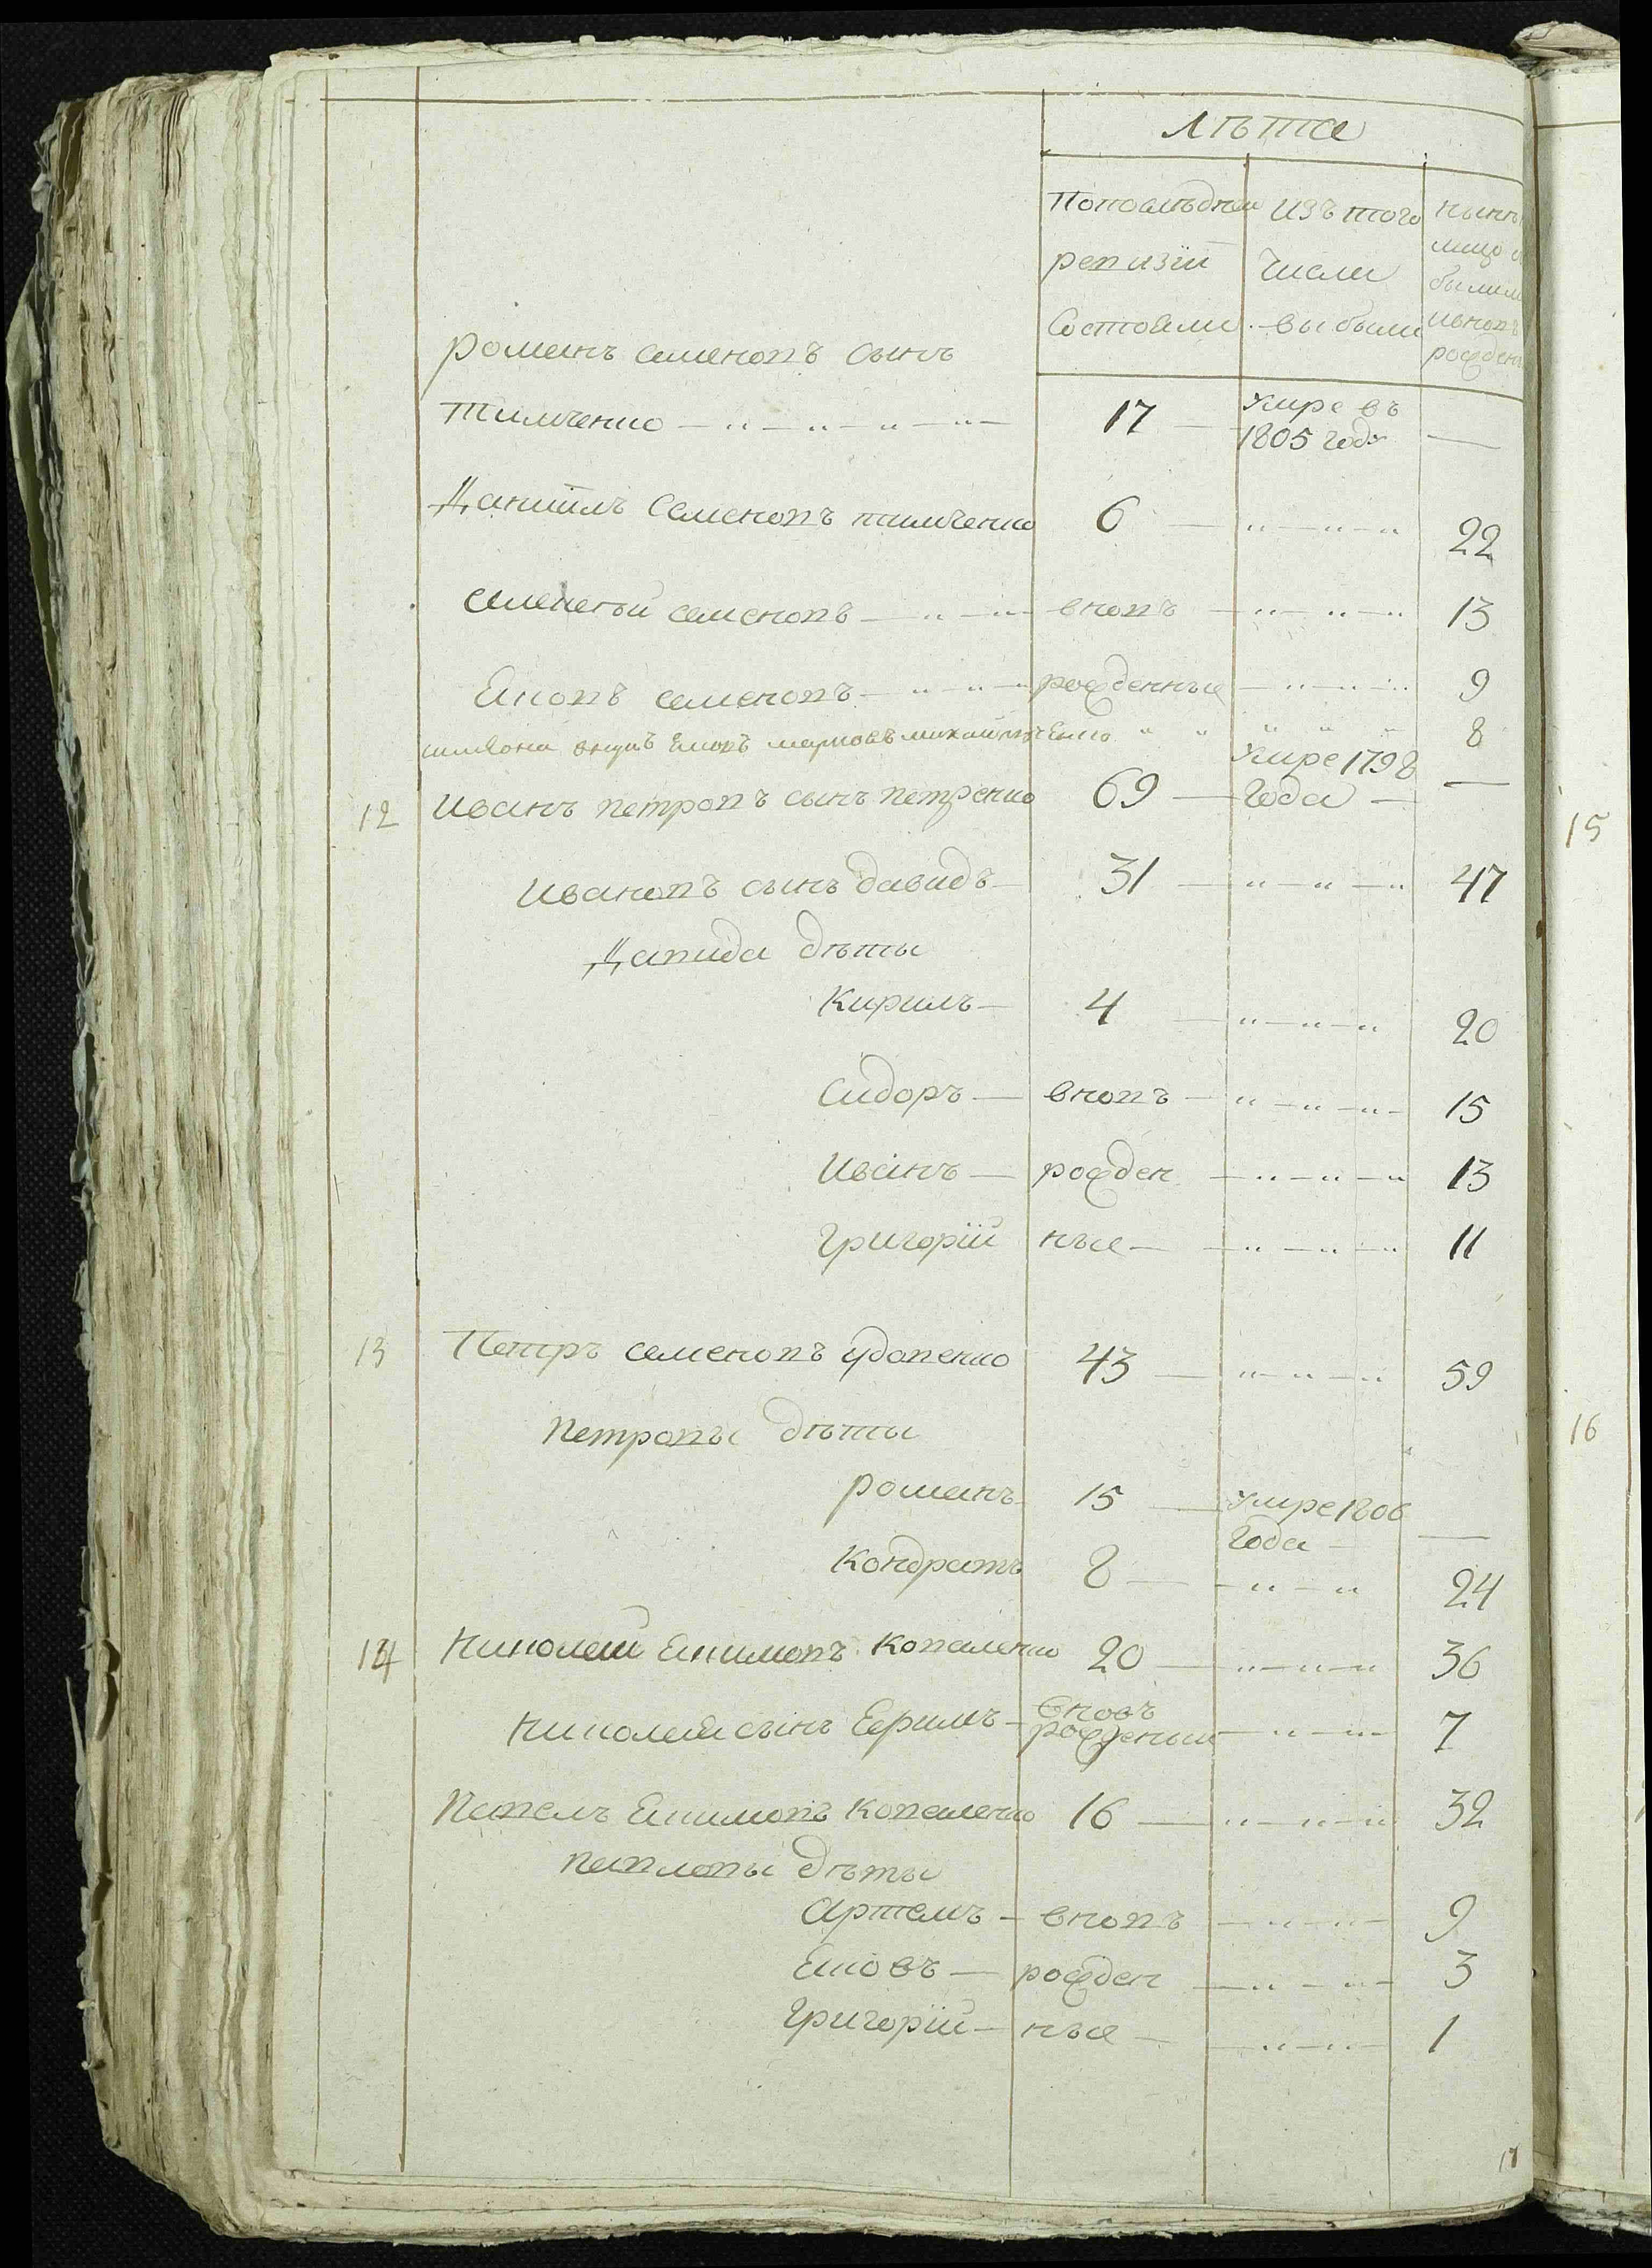 лѣта
Попослѣдней изъ того нынѣ
ревизіи числа лицо
состояли выбыли были
ивновъ
рожден
романъ семеновъ сынъ
тимченко 17 умре въ
1805 году
Даниилъ Семеновъ тимченко 6 22
семеновъ вновъ 13
Яковъ семеновъ рожденные 9
внукъ Яковъ марковъ 8
12 Иванъ петровъ сынъ петренко 69 умре 1798
года
15
Ивановъ сынъ давидъ 31 47
Давида дѣты
Кирилъ 4 20
Сидоръ вновъ 15
Иванъ рожден 13
Григорій ные 11
13 Петръ семеновъ удовенко 43 59
Петровы дѣты
16
романъ 15 умре 1806
года
Кондратъ 8 24
14 Николай Екимовъ Коваленко 20 36
Николая сынъ Ефимъ вновъ
рожденый 7
Павелъ Екимовъ Коваленко 16 32
павловы дѣты
Артемъ вновъ 9
Яковъ рожден 3
Григорій ные 1